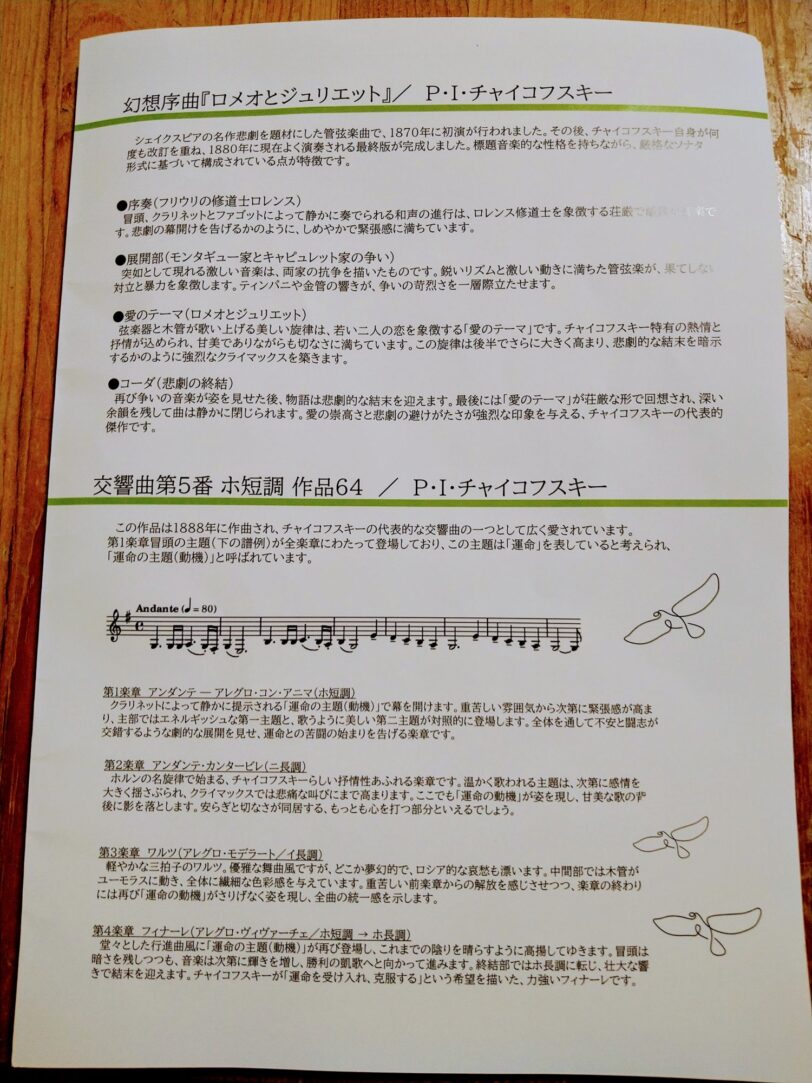 幻想序曲『ロメオとジュリエット』／ P・I・チャイコフスキー
シェイクスピアの名作悲劇を題材にした管弦楽曲で、1870年に初演が行われました。その後、チャイコフスキー自身が何
度も改訂を重ね、1880年に現在よく演奏される最終版が完成しました。標題音楽的な性格を持ちながら、厳格なソナタ
形式に基づいて構成されている点が特徴です。
●序奏（フリウリの修道士ロレンス）
冒頭、クラリネットとファゴットによって静かに奏でられる和声の進行は、ロレンス修道士を象徴する荘厳で
す。悲劇の幕開けを告げるかのように、しめやかで緊張感に満ちています。
●展開部（モンタギュー家とキャピュレット家の争い）
突如として現れる激しい音楽は、両家の抗争を描いたものです。鋭いリズムと激しい動きに満ちた管弦楽が、果てしない
対立と暴力を象徴します。ティンパニや金管の響きが、争いの苛烈さを一層際立たせます。
●愛のテーマ（ロメオとジュリエット）
弦楽器と木管が歌い上げる美しい旋律は、若い二人の恋を象徴する「愛のテーマ」です。チャイコフスキー特有の熱情と
抒情が込められ、甘美でありながらも切なさに満ちています。この旋律は後半でさらに大きく高まり、悲劇的な結末を暗示
するかのように強烈なクライマックスを築きます。
●コーダ（悲劇の終結）
再び争いの音楽が姿を見せた後、物語は悲劇的な結末を迎えます。最後には「愛のテーマ」が荘厳な形で回想され、深い
余韻を残して曲は静かに閉じられます。愛の崇高さと悲劇の避けがたさが強烈な印象を与える、チャイコフスキーの代表的
傑作です。
交響曲第5番 ホ短調 作品64 ／ P・I・チャイコフスキー
この作品は1888年に作曲され、チャイコフスキーの代表的な交響曲の一つとして広く愛されています。
第1楽章冒頭の主題（下の譜例）が全楽章にわたって登場しており、この主題は「運命」を表していると考えられ、
「運命の主題（動機）」と呼ばれています。
Andante (♩= 80)
第1楽章 アンダンテ ― アレグロ・コン・アニマ（ホ短調）
クラリネットによって静かに提示される「運命の主題（動機）」で幕を開けます。重苦しい雰囲気から次第に緊張感が高ま
り、主部ではエネルギッシュな第一主題と、歌うように美しい第二主題が対照的に登場します。全体を通して不安と闘志が
交錯するような劇的な展開を見せ、運命との苦闘の始まりを告げる楽章です。
第2楽章 アンダンテ・カンタービレ（ニ長調）
ホルンの名旋律で始まる、チャイコフスキーらしい抒情性あふれる楽章です。温かく歌われる主題は、次第に感情を
大きく揺さぶられ、クライマックスでは悲痛な叫びにまで高まります。ここでも「運命の動機」が姿を現し、甘美な歌の背
後に影を落とします。安らぎと切なさが同居する、もっとも心を打つ部分といえるでしょう。
第3楽章 ワルツ（アレグロ・モデラート／イ長調）
軽やかな三拍子のワルツ。優雅な舞曲風ですが、どこか夢幻的で、ロシア的な哀愁も漂います。中間部では木管が
ユーモラスに動き、全体に繊細な色彩感を与えています。重苦しい前楽章からの解放を感じさせつつ、楽章の終わり
には再び「運命の動機」がさりげなく姿を現し、全曲の統一感を示します。
第4楽章 フィナーレ（アレグロ・ヴィヴァーチェ／ホ短調 → ホ長調）
堂々とした行進曲風に「運命の主題（動機）」が再び登場し、これまでの陰りを晴らすように高揚してゆきます。冒頭は
暗さを残しつつも、音楽は次第に輝きを増し、勝利の凱歌へと向かって進みます。終結部ではホ長調に転じ、壮大な響
きで結末を迎えます。チャイコフスキーが「運命を受け入れ、克服する」という希望を描いた、力強いフィナーレです。